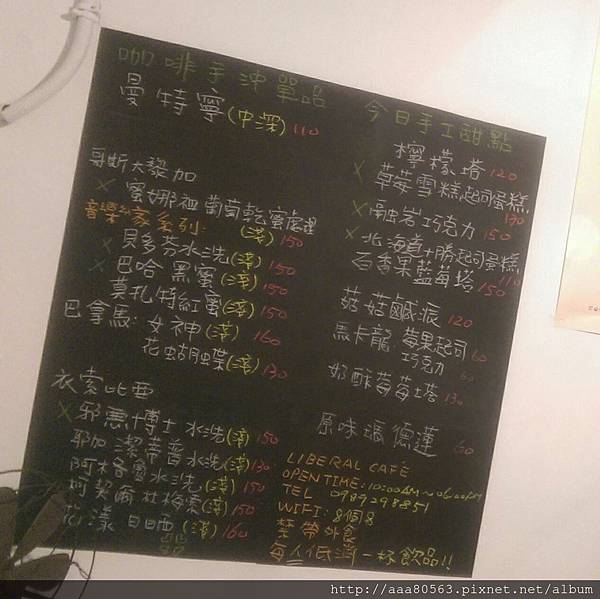 咖啡手沖單品
曼特寧(中深) 110
哥斯大黎加
X 蜜娜祖葡萄乾蜜處理
(淺) 150
音樂家系列:
X 貝多芬水洗(淺) 150
X 巴哈 黑蜜(淺) 150
莫札特紅蜜(淺) 150
巴拿馬: 女神(淺) 160
花蝴蝶(淺) 130
衣索比亞
X 邪惡十博士 水洗(淺) 150
耶加 潔蒂普水洗(淺) 130
水洗(淺) 150
杜梅索(淺) 150
花漾 日晒(淺) 160
今日手工甜點
檸檬塔 120
X 草莓雪糕起司蛋糕 130
X 融岩巧克力 150
X 北海道十勝起司蛋糕 110
百香果藍莓塔 150
菇菇鹹派 120
馬卡龍 莓果起司 60
巧克力 60
奶酥莓莓塔 130
原味瑪德蓮 60
LIBERAL CAFE
OPEN TIME: 10:00AM~06:00PM
TEL 0989298851
WIFI: 8個8
禁帶外食
每人低消一杯飲品!!
http://aaa80563.pixnet.net/album